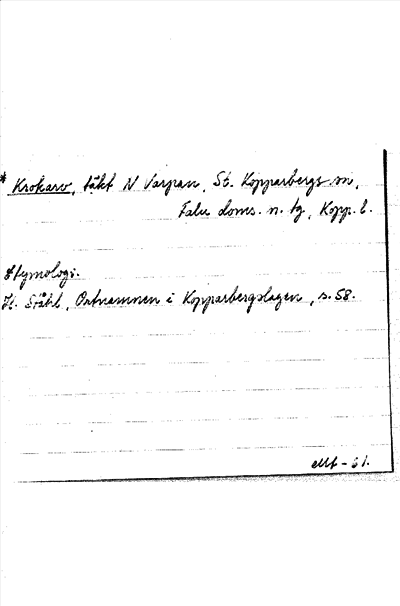 * Krokarv, täkt N Varpan, St. Kopparbergs sn,
Falu doms. n. tg, Kopp. l.
Etymologi.
H. Ståhl, Ortnamnen i Kopparbergslagen, s. 58.
-61.